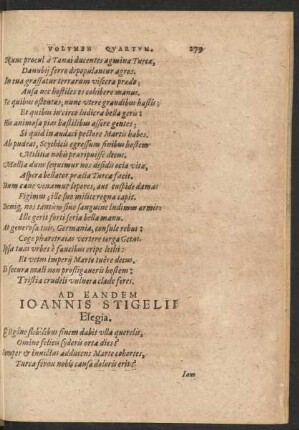 VOLVMEN QVARTVM. 279
Nunc procul à Tanai ducentes agmina Turcæ,
Danubij ferro depopulantur agros.
In tua grassatur terrarum viscera prædo;
Ausa nec hostiles es cohibere manus.
Te quibus ostentas, nunc vtere grandibus hastis;
Et quibus in circo ludicra bella geris:
His animosa pias hastilibus assere gentes;
Si quid in audaci pectore Martis habes.
Ah pudeat, Scythicis egressum finibus hostem
Militiæ nobis præripuisse decus.
Mollia dum sequimur nos desidis ocia vitæ,
Aspera bellator prælia Turca facit.
Dum canè venamur lepores, aut cuspide damas
Figimus; ille suo milite regna capit.
nos tantùm sine sanguine ludimus armis:
Ille gerit forti seria bella manu.
At generosa tuis, Germania, consule rebus:
Coge pharetratos vertere terga Getas.
Ipsa tuas vrbes è faucibus eripe lethi:
Et vetus imperij Marte tuêre decus.
mali non profligaueris hostem;
Tristia crudeli vulnera clade feres.
AD EANDEM
IOANNIS STIGELII
Elegia.
flebilibus finem dabit vlla querelis,
Omine felicis syderis orta dies?
Semper & inuictas adducens Marte cohortes,
Turca ferox nobis causa doloris erit?
Iam